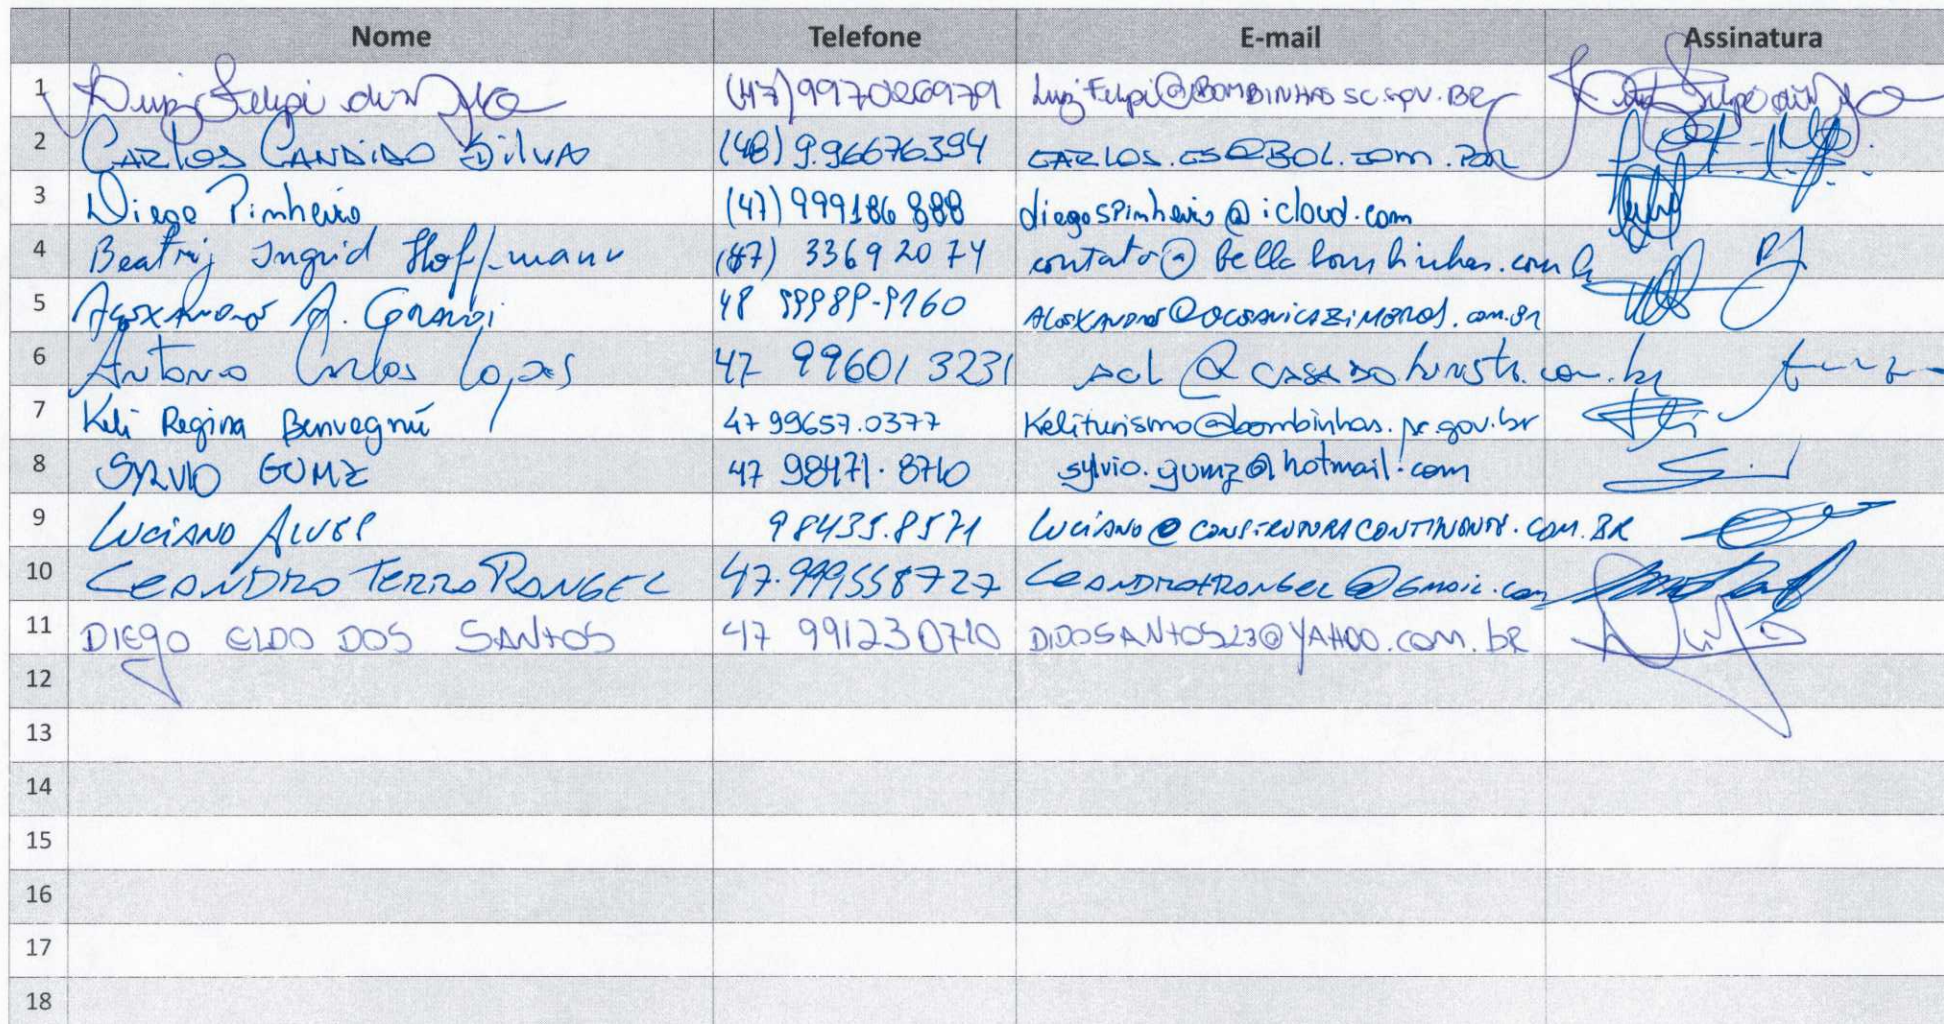 Nome Telefone E-mail Assinatura
1 Luiz Felipi da Silva (47)997026979 LuizFelipi@BOMBINHAS SC.GOV.BR
2 CARLOS CANDIDO SILVA (48)9.96676394 CARLOS.CS@BOL.COM.
3 Diego Pinheiro (47)999186888 diegospinheiro@icloud.com
4 Beatriz Ingrid Hoffmann (47) 33692074 contato@bellabombinhas.com
5 A. 48 99989-9160
6 Antonio Carlos Lopes 47 99601 3231 acl@
7 Keli Regina Benvegnú 47 99657.0377 Keliturismo@bombinhas.sc.gov.br
8 SYLVIO GUMZ 47 98471.8710 sylvio.gumz@hotmail.com
9 LUCIANO ALVES 98435.8571 LUCIANO@CONSTRUTORACONTINENTE.COM.BR
10 LEANDRO TERRA RANGEL 47.999558727 LEANDROTRANGEL@GMAIL.com
11 DIEGO ELDO DOS SANTOS 47 991230710 DIDOSANTOS23@YAHOO.COM.bR
12
13
14
15
16
17
18